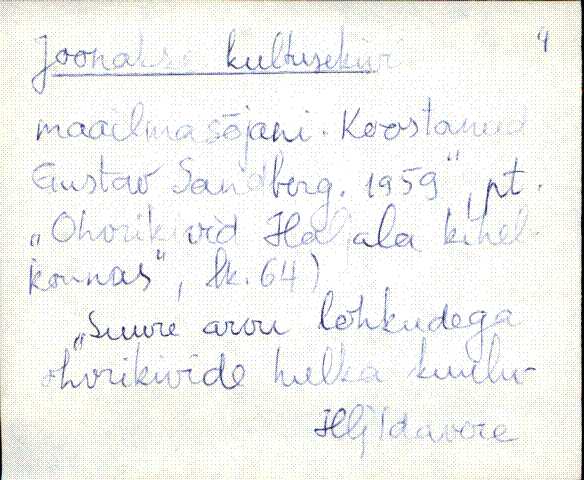 Joonakse kultusekivi 4
maailmasõjani. Koostanud
Gustav Sandberg. 1959", pt.
„Ohvrikivid Haljala kihel-
konnas", lk. 64)
„Suure arvu lohkudega
ohvrikivide hulka kuulu-
Hlj Idavere